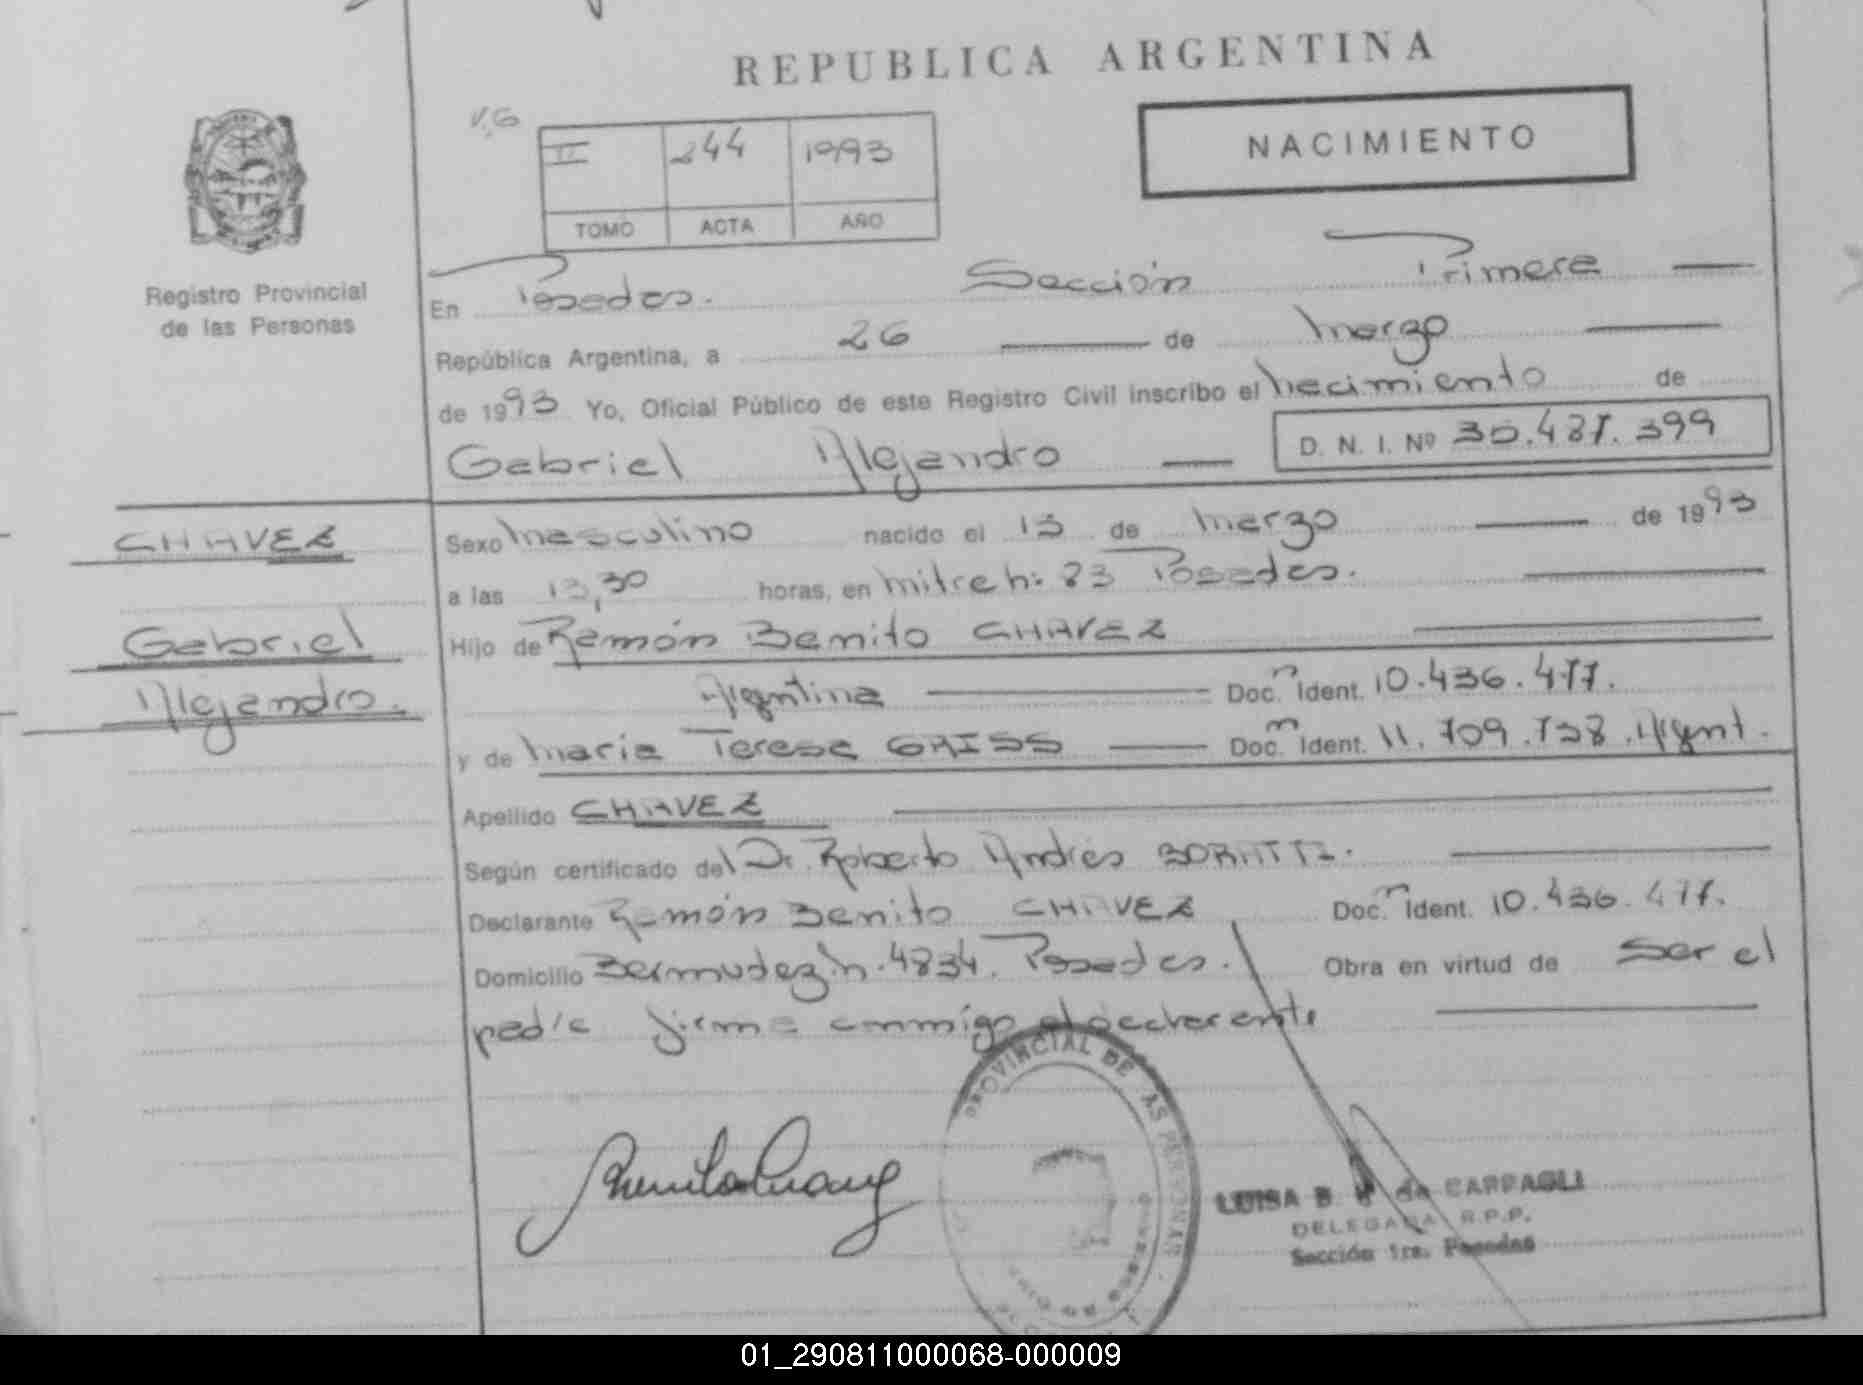 REPUBLICA ARGENTINA
V.G
II 244 1993
TOMO ACTA AÑO
NACIMIENTO
Registro Provincial
de las Personas
En Posadas. Sección Primera
República Argentina, a 26 de Marzo
de 1993 Yo, Oficial Público de este Registro Civil inscribo el Nacimiento de
Gabriel Alejandro D. N. I. Nº
CHAVEZ
Gabriel
Alejandro.
Sexo Masculino nacido el 13 de Marzo de 1993
a las 13,30 horas, en Mitre Nº 83 Posadas.
Hijo de Ramón Benito CHAVEZ
Argentina Doc. Ident. 10.436.477.
y de María Teresa GRISS Doc. Ident. Argent.
Apellido CHAVEZ
Según certificado del Dr. Roberto Andrés
Declarante Ramón Benito CHAVEZ Doc. Ident. 10.436.477.
Domicilio Bermudez Nº 4834. Posadas. Obra en virtud de Ser el
padre firma conmigo el declarante
PROVINCIAL DE LAS PERSONAS
LUISA B. de
DELEGADA R.P.P.
Sección 1ra. Posadas
01_290811000068-000009